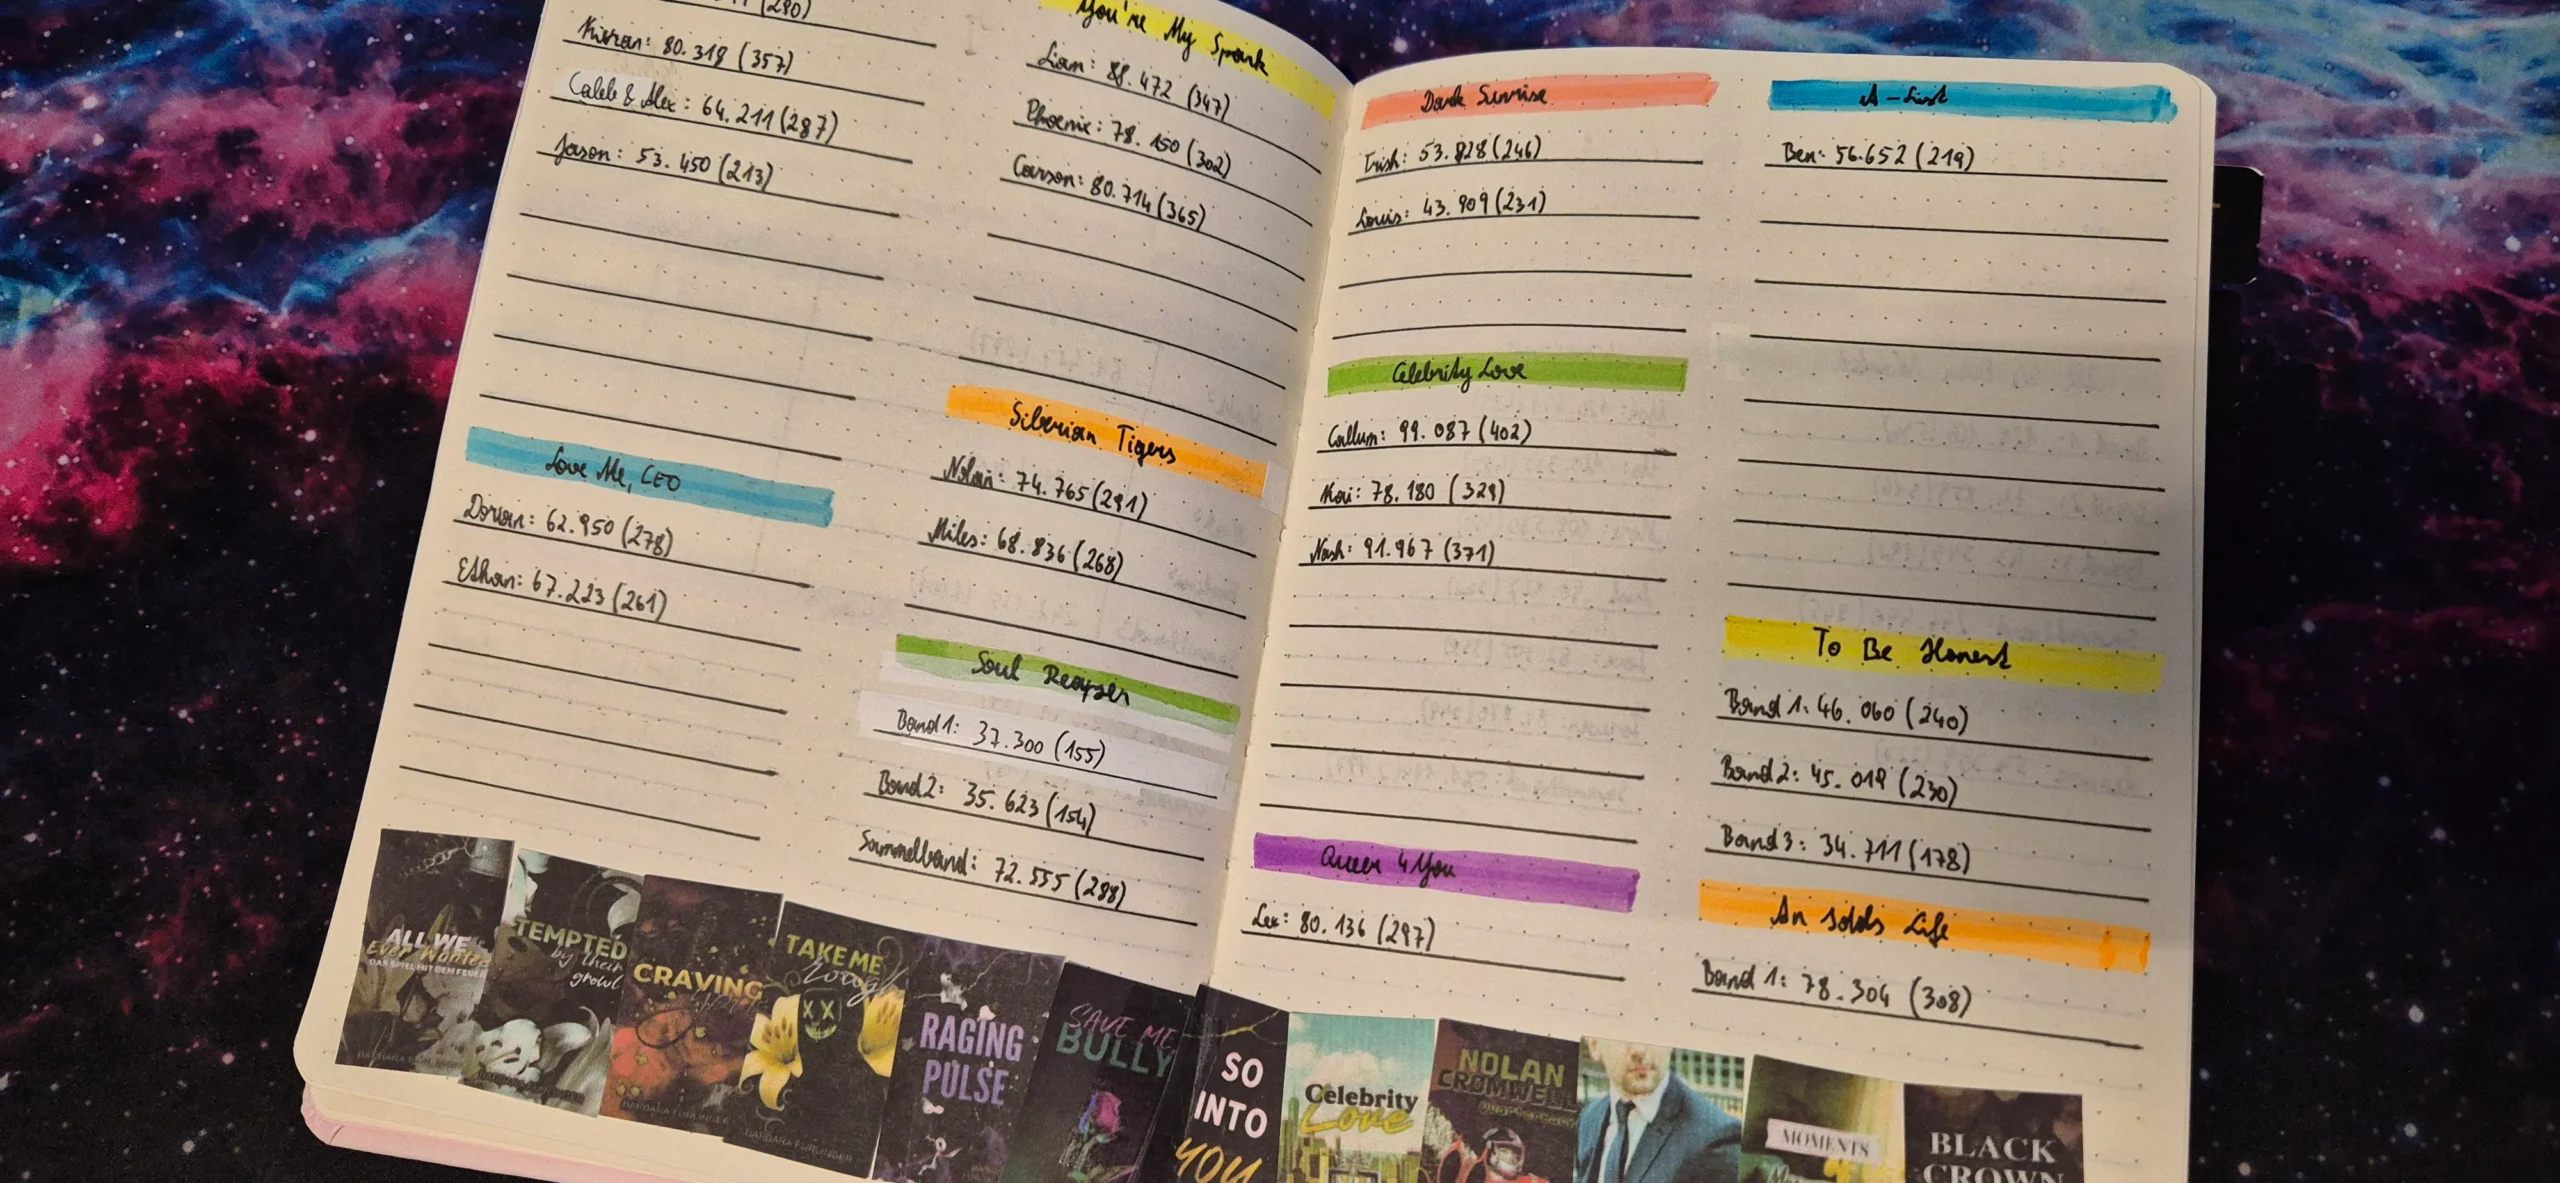 (290)
Kieran: 80.318 (357)
Caleb & Alex: 64.211 (287)
Jason: 53.450 (213)
Love Me, CEO
Dorian: 62.950 (278)
Ethan: 67.223 (261)
You're My Spark
Lian: 88.472 (347)
Phoenix: 78.150 (302)
Carson: 80.714 (365)
Siberian Tigers
Nolan: 74.765 (291)
Miles: 68.836 (268)
Soul Reaper
Band 1: 37.300 (155)
Band 2: 35.623 (154)
Sammelband: 72.555 (288)
Dark Sunrise
Trish: 53.828 (246)
Louis: 43.909 (231)
Celebrity Love
Callum: 99.087 (402)
Kai: 78.180 (329)
Nash: 91.967 (371)
Queer 4 You
Lex: 80.136 (297)
A-List
Ben: 56.652 (219)
To Be Honest
Band 1: 46.060 (240)
Band 2: 45.019 (230)
Band 3: 34.711 (178)
An Life
Band 1: 78.304 (308)
ALL WE
Ever Wanted
DAS SPIEL MIT DEM FEUER
TEMPTED
by their
growl
CRAVING
TAKE ME
BARBARA FÜRLINGER
RAGING
PULSE
SAVE ME
BULLY
SO
INTO
YOU
Celebrity
Love
NOLAN
CROMWELL
Quarterback
MOMENTS
BLACK
CROWN